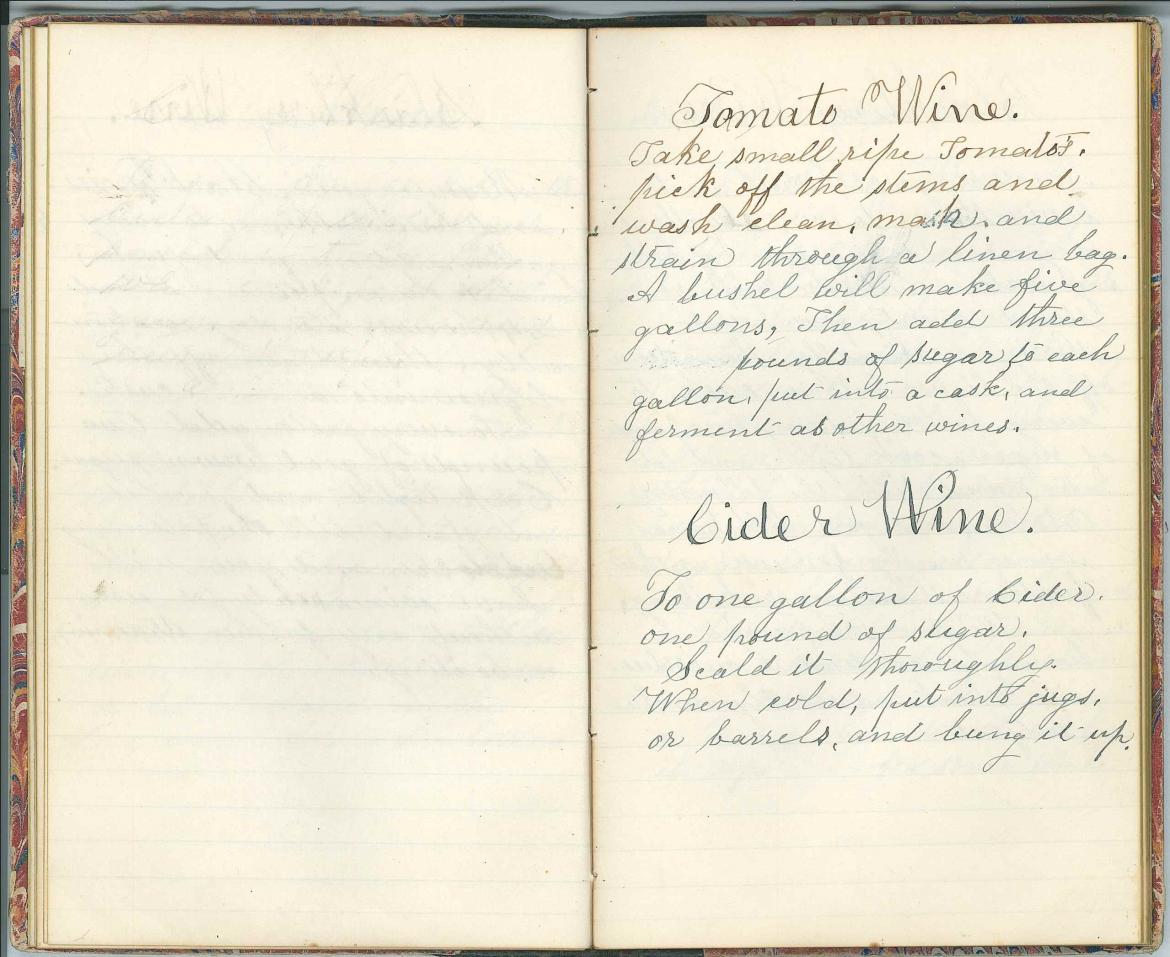 Tomato Wine.
Take small ripe Tomato's.
pick off the stems and
wash clean, mash, and
strain through a linen bag.
A bushel will make five
gallons, Then add three
pounds of sugar to each
gallon, put into a cask, and
ferment as other wines.
Cider Wine.
To one gallon of Cider.
one pound of sugar.
Scald it thoroughly.
When cold, put into jugs,
or barrels, and bung it up.